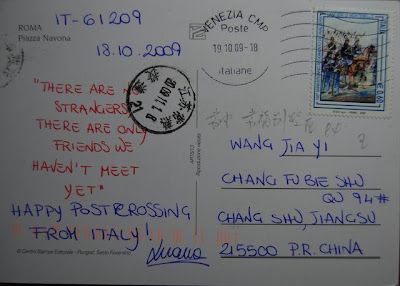 ROMA
Piazza Navona
IT-61209
18.10.2009
"THERE ARE NO
STRANGERS,
THERE ARE ONLY
FRIENDS WE
HAVEN'T MEET
YET"
HAPPY POSTCROSSING
FROM ITALY!
© Centro Stampa Editoriale - Plurigraf, Sesto Fiorentino
Riproduzione vietata
VENEZIA CMP
Poste
19.10.09-18
italiane
WANG JIA YI
CHANG FU BIE SHU
QU 94#
CHANG SHU, JIANGSU
215500 P.R. CHINA